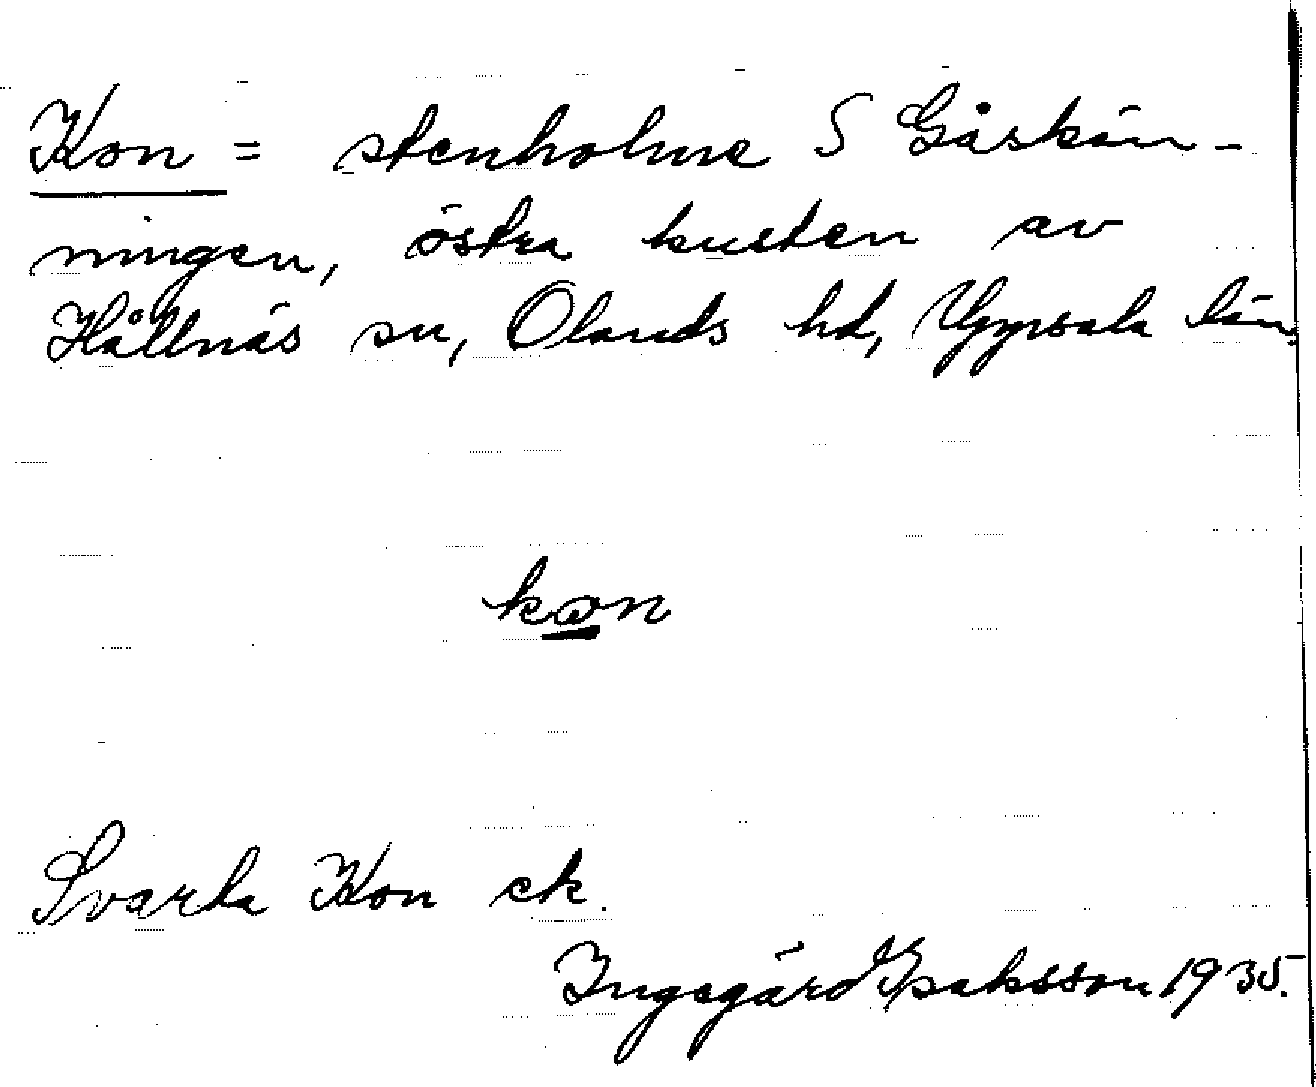 Kon = stenholme S Gåskän-
ningen, östra kusten av
Hållnäs sn, Olands hd, Uppsala län
kon
Svarta Kon ek.
Ingegärd Isaksson 1935.